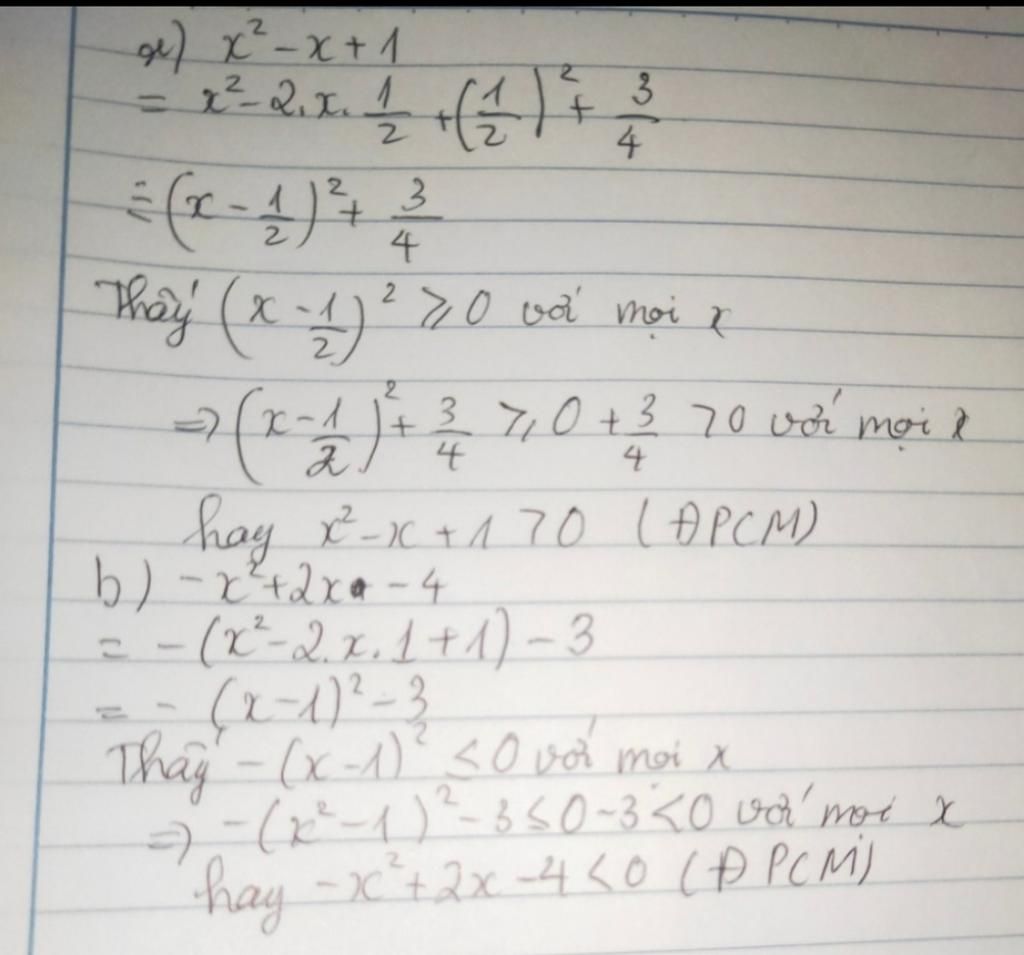 a) x² - x + 1
= x² - 2.x.1/2 + (1/2)² + 3/4
= (x - 1/2)² + 3/4
Thấy (x - 1/2)² ⩾ 0 với mọi x
=> (x - 1/2)² + 3/4 ⩾ 0 + 3/4 > 0 với mọi x
hay x² - x + 1 > 0 (ĐPCM)
b) -x² + 2x - 4
= -(x² - 2.x.1 + 1) - 3
= - (x - 1)² - 3
Thấy -(x - 1)² ≤ 0 với mọi x
=> -(x² - 1)² - 3 ≤ 0 - 3 < 0 với mọi x
hay -x² + 2x - 4 < 0 (ĐPCM)